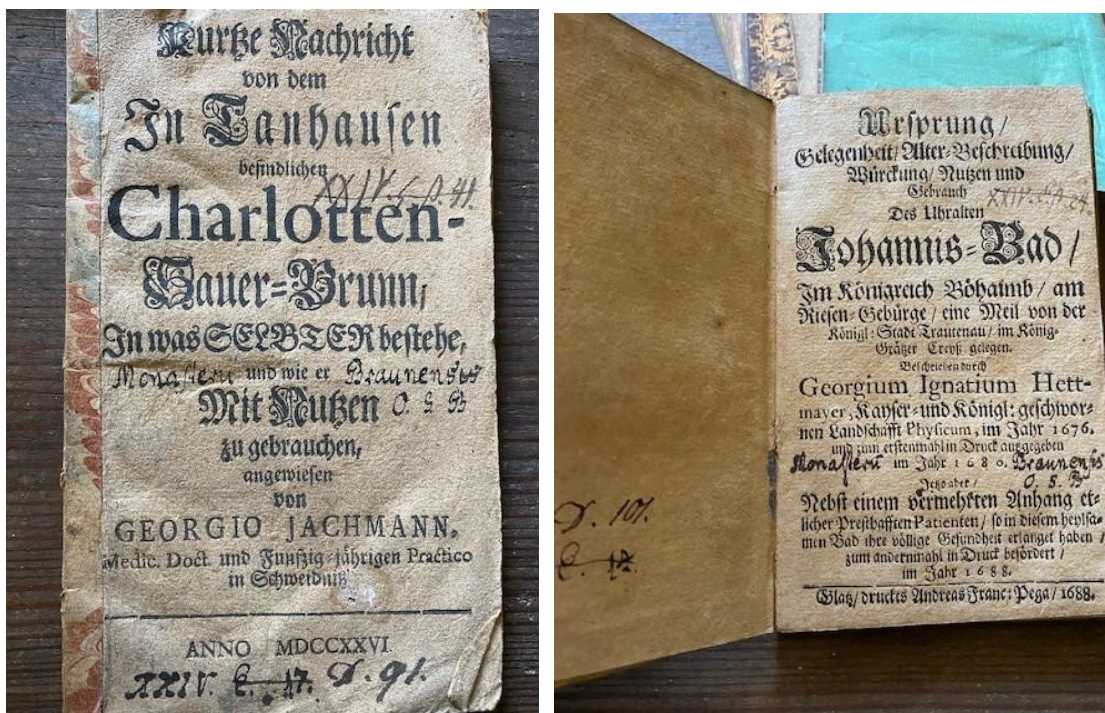 Kurtze Nachricht
von dem
In Tanhausen
befindlichen
Charlotten-
Sauer-Brunn,
In was SELBTER bestehe,
Monasterii und wie er Braunensis
Mit Nutzen O. S. B
zu gebrauchen,
angewiesen
von
GEORGIO JACHMANN,
Medic. Doct. und Funfzig-jährigen Practico
in Schweidnitz
ANNO MDCCXXVI.
XXIV. D. 91.
D. 101.
Ursprung/
Gelegenheit/ Alter-Beschreibung/
Würckung/ Nutzen und
Gebrauch
Des Uhralten
Johannis-Bad/
Im Königreich Böhaimb/ am
Riesen-Gebürge/ eine Meil von der
Königl: Stadt Trautenau/ im König-
Grätzer Creyß gelegen.
Beschrieben durch
Georgium Ignatium Hett-
mayer, Kayser- und Königl: geschwor-
nen Landschafft Physicum, im Jahr 1676.
und zum erstenmahl in Druck außgegeben
Monasterii im Jahr 1680. Braunensis
Jetzo aber/ O. S. B
Nebst einem vermehrten Anhang et-
licher Presthafften Patienten/ so in diesem heylsa-
men Bad ihre völlige Gesundheit erlanget haben/
zum andernmahl in Druck befördert/
im Jahr 1688.
Glatz/ druckts Andreas Franc: Pega/ 1688.